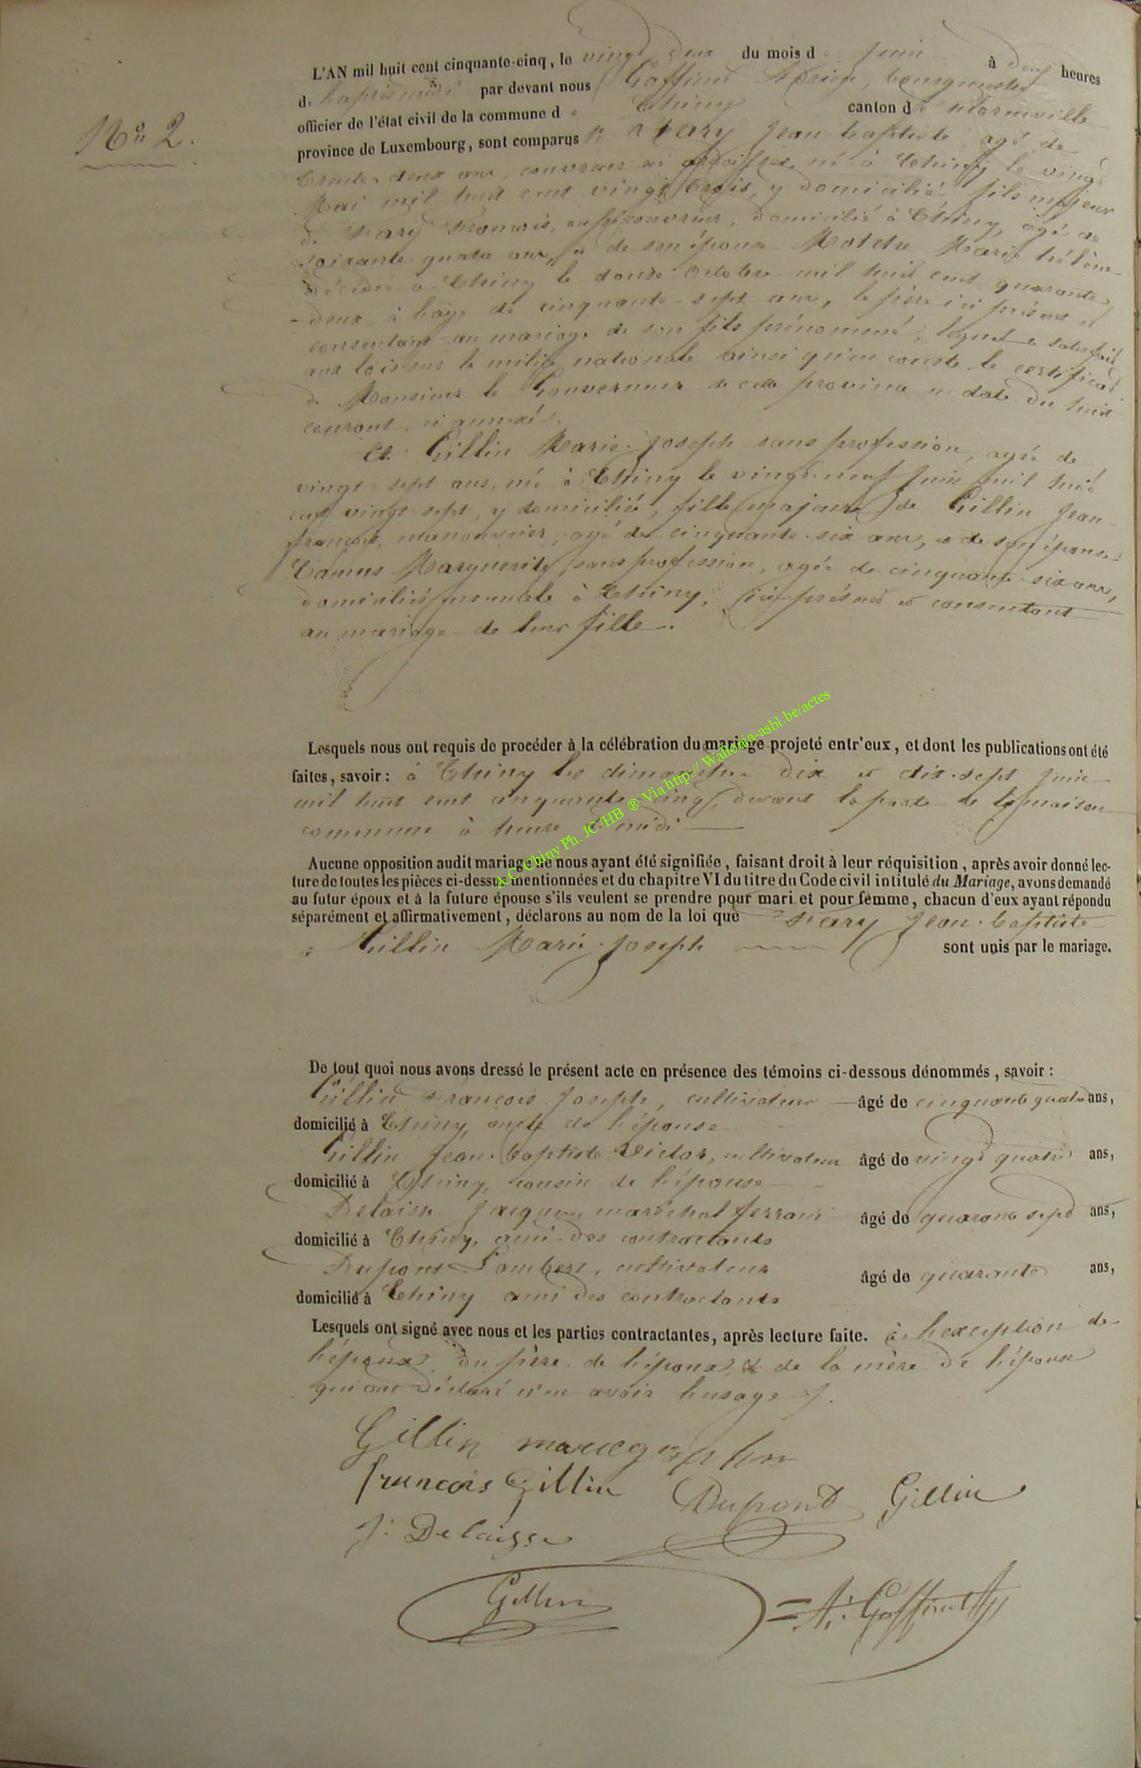 No 2.
L'AN mil huit cent cinquante-cinq, le vingt deux du mois de Juin à deux heures
de l'après midi par devant nous Goffinet Adrien, bourgmestre
officier de l'état civil de la commune de Chiny canton de
province de Luxembourg, sont comparus Jean Baptiste, agé de
trente deux ans, couvreur en ardoises, né à Chiny le vingt
Mai mil huit cent vingt trois, y domicilié, fils majeur
de François, domicilié à Chiny, agé de
soixante quatre ans, et de son épouse Marie Hélène
décédée à Chiny le douze Octobre mil huit cent quarante
-deux, à l'âge de cinquante-sept ans, le père ici présent et
consentant au mariage de son fils prénommé, lequel a satisfait
aux lois sur la milice nationale ainsi qu'en conste le certificat
de Monsieur le Gouverneur de cette province en date du huit
courant, ci annexé.
Et Gillin Marie-Joseph sans profession, agée de
vingt-sept ans, née à Chiny le vingt-neuf Juin mil huit
cent vingt sept, y domiciliée, fille majeure de Gillin Jean
françois, manouvrier, agé de cinquante-six ans, et de son épouse
Camus Marguerite, sans profession, agée de cinquante-six ans,
domiciliés ensemble à Chiny, ici présens et consentant
au mariage de leur fille.
Lesquels nous ont requis de procéder à la célébration du mariage projeté entr'eux, et dont les publications ont été
faites, savoir : à Chiny les dimanches dix et dix-sept Juin
mil huit cent cinquante cinq, devant la porte de la maison
commune à heure de midi
Aucune opposition audit mariage ne nous ayant été signifiée, faisant droit à leur réquisition, après avoir donné lec-
ture de toutes les pièces ci-dessus mentionnées et du chapitre VI du titre du Code civil intitulé du Mariage, avons demandé
au futur époux et à la future épouse s'ils veulent se prendre pour mari et pour femme, chacun d'eux ayant répondu
séparément et affirmativement, déclarons au nom de la loi que Jean-baptiste
et Gillin Marie-Joseph sont unis par le mariage.
De tout quoi nous avons dressé le présent acte en présence des témoins ci-dessous dénommés, savoir :
Gillin François Joseph, cultivateur âgé de cinquante quatre ans,
domicilié à Chiny, oncle de l'épouse
Gillin Jean-baptiste Victor, cultivateur âgé de vingt quatre ans,
domicilié à Chiny, cousin de l'épouse
Delaisse Jacques, maréchal ferrant âgé de quarante sept ans,
domicilié à Chiny, ami des contractants
Dupont Lambert, cultivateur âgé de quarante ans,
domicilié à Chiny ami des contractants
Lesquels ont signé avec nous et les parties contractantes, après lecture faite. à l'exception de
l'époux, du père de l'époux, & de la mère de l'épouse
qui ont déclaré n'en avoir l'usage.
Gillin
françois Gillin Dupont Gillin
J: Delaisse
Gillin A: Goffinet
A.C. Chiny Ph. JC/HB ® Via http:// Wallonia-asbl.be/actes